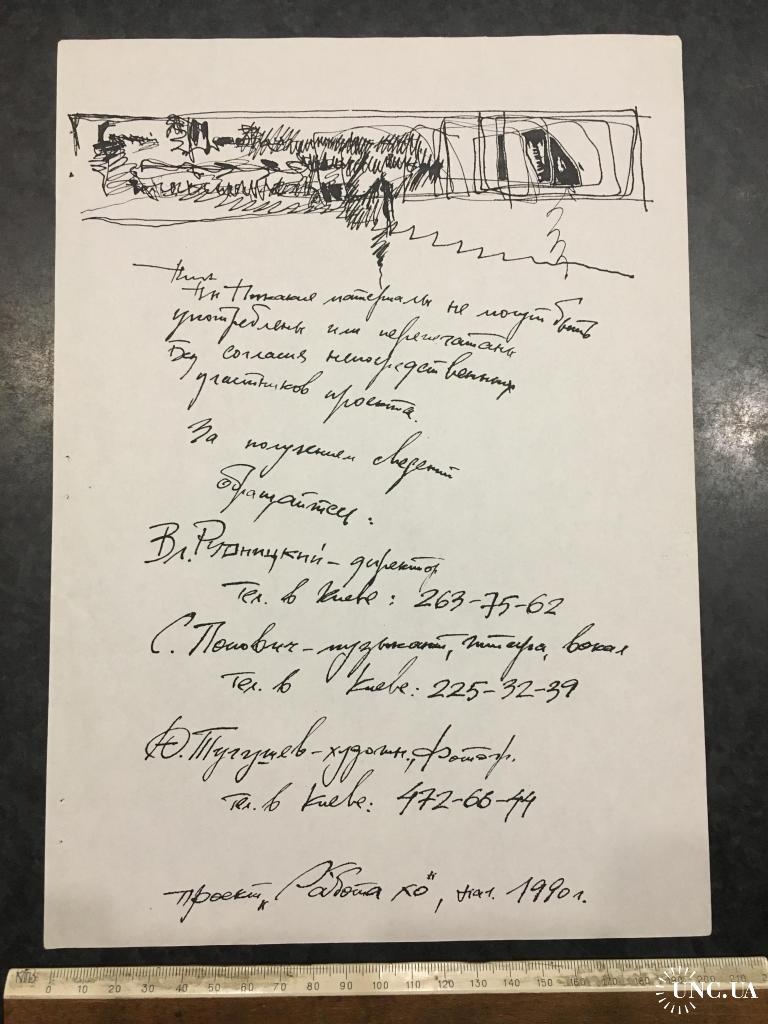 Никакие материалы не могут быть
употреблены или перепечатаны
без согласия непосредственных
участников проекта.
За получением сведений
обращайтесь:
Вл. Рудницкий – директор
Тел. в Киеве: 263-75-62
С. Попович – музыкант, гитара, вокал
Тел. в Киеве: 225-32-39
Ю. Тугушев – художн., фотогр.
Тел. в Киеве: 472-66-44
проект „Работа хо", 1990 г.
0 10 20 30 40 50 60 70 80 90 100 110 120 130 140 150 160 170 180 190 200 210
UNC.UA